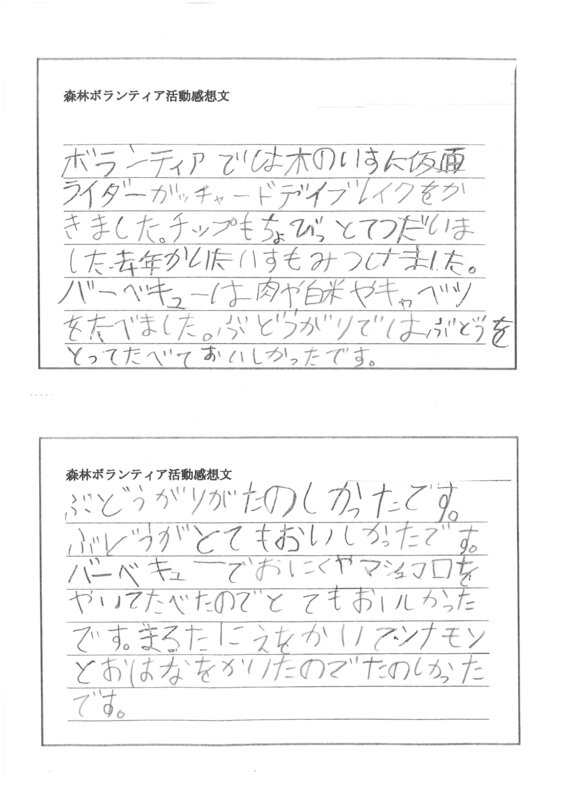 森林ボランティア活動感想文
ボランティアでは木のいすに仮面
ライダーガッチャードデイブレイクをか
きました。チップもちょびっとてつだいま
した。去年かいたいすもみつけました。
バーベキューは肉や白米やキャベツ
をたべました。ぶどうがりではぶどうを
とってたべておいしかったです。
森林ボランティア活動感想文
ぶどうがりがたのしかったです。
ぶどうがとてもおいしかったです。
バーベキューでおにくやマシュマロを
やいてたべたのでとてもおいしかった
です。まるたにえをかいてシナモン
とおはなをかいたのでたのしかった
です。